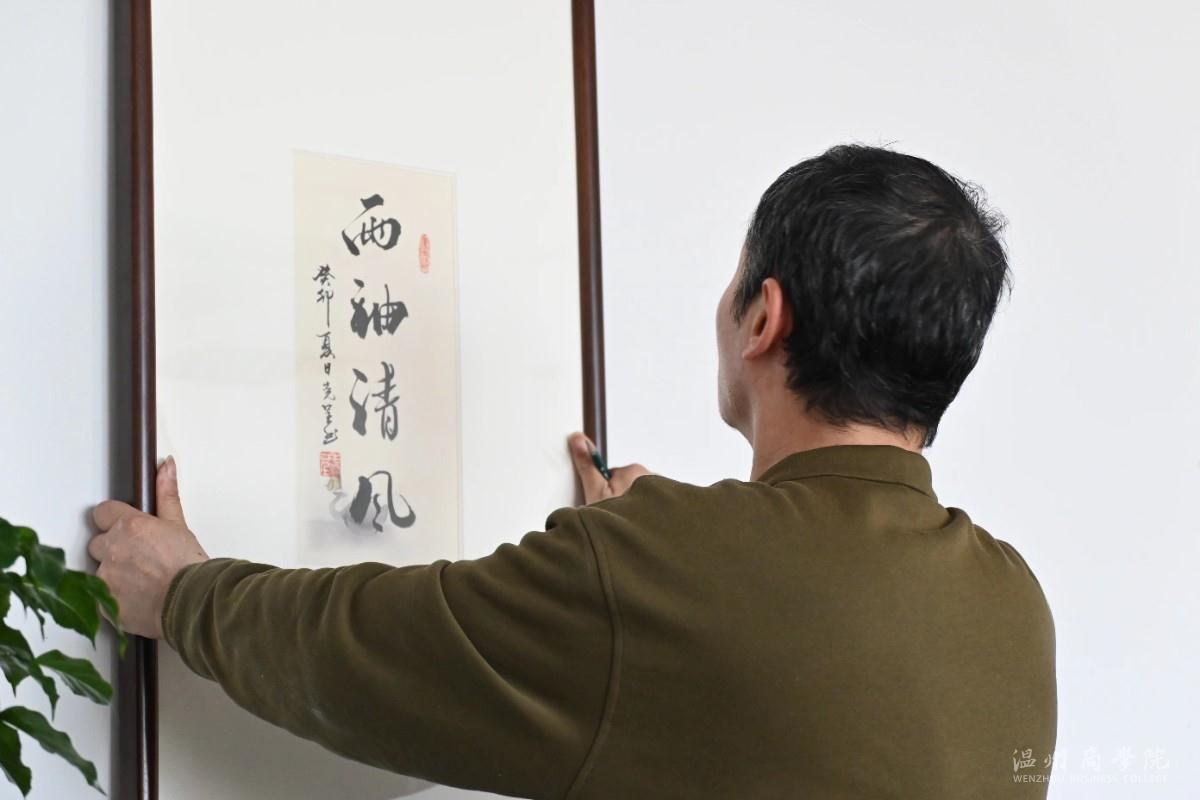 两袖清风
癸卯夏日
温州商學院
WENZHOU BUSINESS COLLEGE